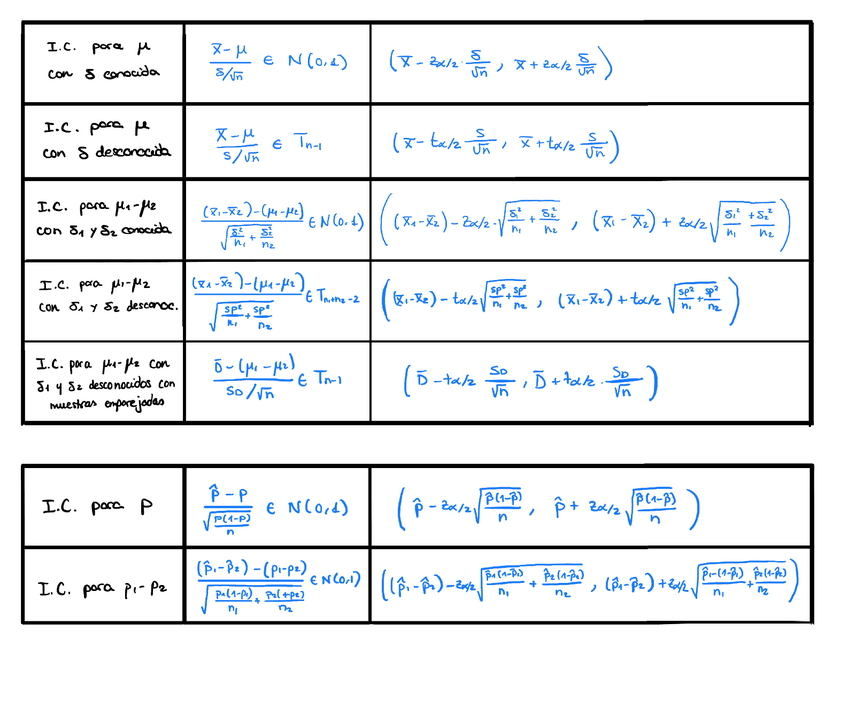 I.C. para μ
con δ conocida
(x̄ - μ)/(δ/√n) ∈ N(0,1)
(x̄ - zα/2 · δ/√n , x̄ + zα/2 δ/√n)
I.C. para μ
con δ desconocida
(x̄ - μ)/(s/√n) ∈ Tn-1
(x̄ - tα/2 s/√n , x̄ + tα/2 s/√n)
I.C. para μ1-μ2
con δ1 y δ2 conocida
((x̄1-x̄2)-(μ1-μ2))/√(δ1²/n1 + δ2²/n2) ∈ N(0,1)
((x̄1-x̄2) - zα/2 · √(δ1²/n1 + δ2²/n2) , (x̄1-x̄2) + zα/2 √(δ1²/n1 + δ2²/n2))
I.C. para μ1-μ2
con δ1 y δ2 desconoc.
((x̄1-x̄2)-(μ1-μ2))/√(sp²/n1 + sp²/n2) ∈ Tn1+n2-2
((x̄1-x̄2) - tα/2 √(sp²/n1 + sp²/n2) , (x̄1-x̄2) + tα/2 √(sp²/n1 + sp²/n2))
I.C. para μ1-μ2 con
δ1 y δ2 desconocidos con
muestras emparejadas
(D̄ - (μ1-μ2))/(SD/√n) ∈ Tn-1
(D̄ - tα/2 SD/√n , D̄ + tα/2 · SD/√n)
I.C. para p
(p̂ - p)/√(p(1-p)/n) ∈ N(0,1)
(p̂ - zα/2 √(p̂(1-p̂)/n) , p̂ + zα/2 √(p̂(1-p̂)/n))
I.C. para p1-p2
((p̂1-p̂2) - (p1-p2))/√(p1(1-p1)/n1 + p2(1-p2)/n2) ∈ N(0,1)
((p̂1-p̂2) - zα/2 √(p̂1(1-p̂1)/n1 + p̂2(1-p̂2)/n2) , (p̂1-p̂2) + zα/2 √(p̂1-(1-p̂1)/n1 + p̂2(1-p̂2)/n2))